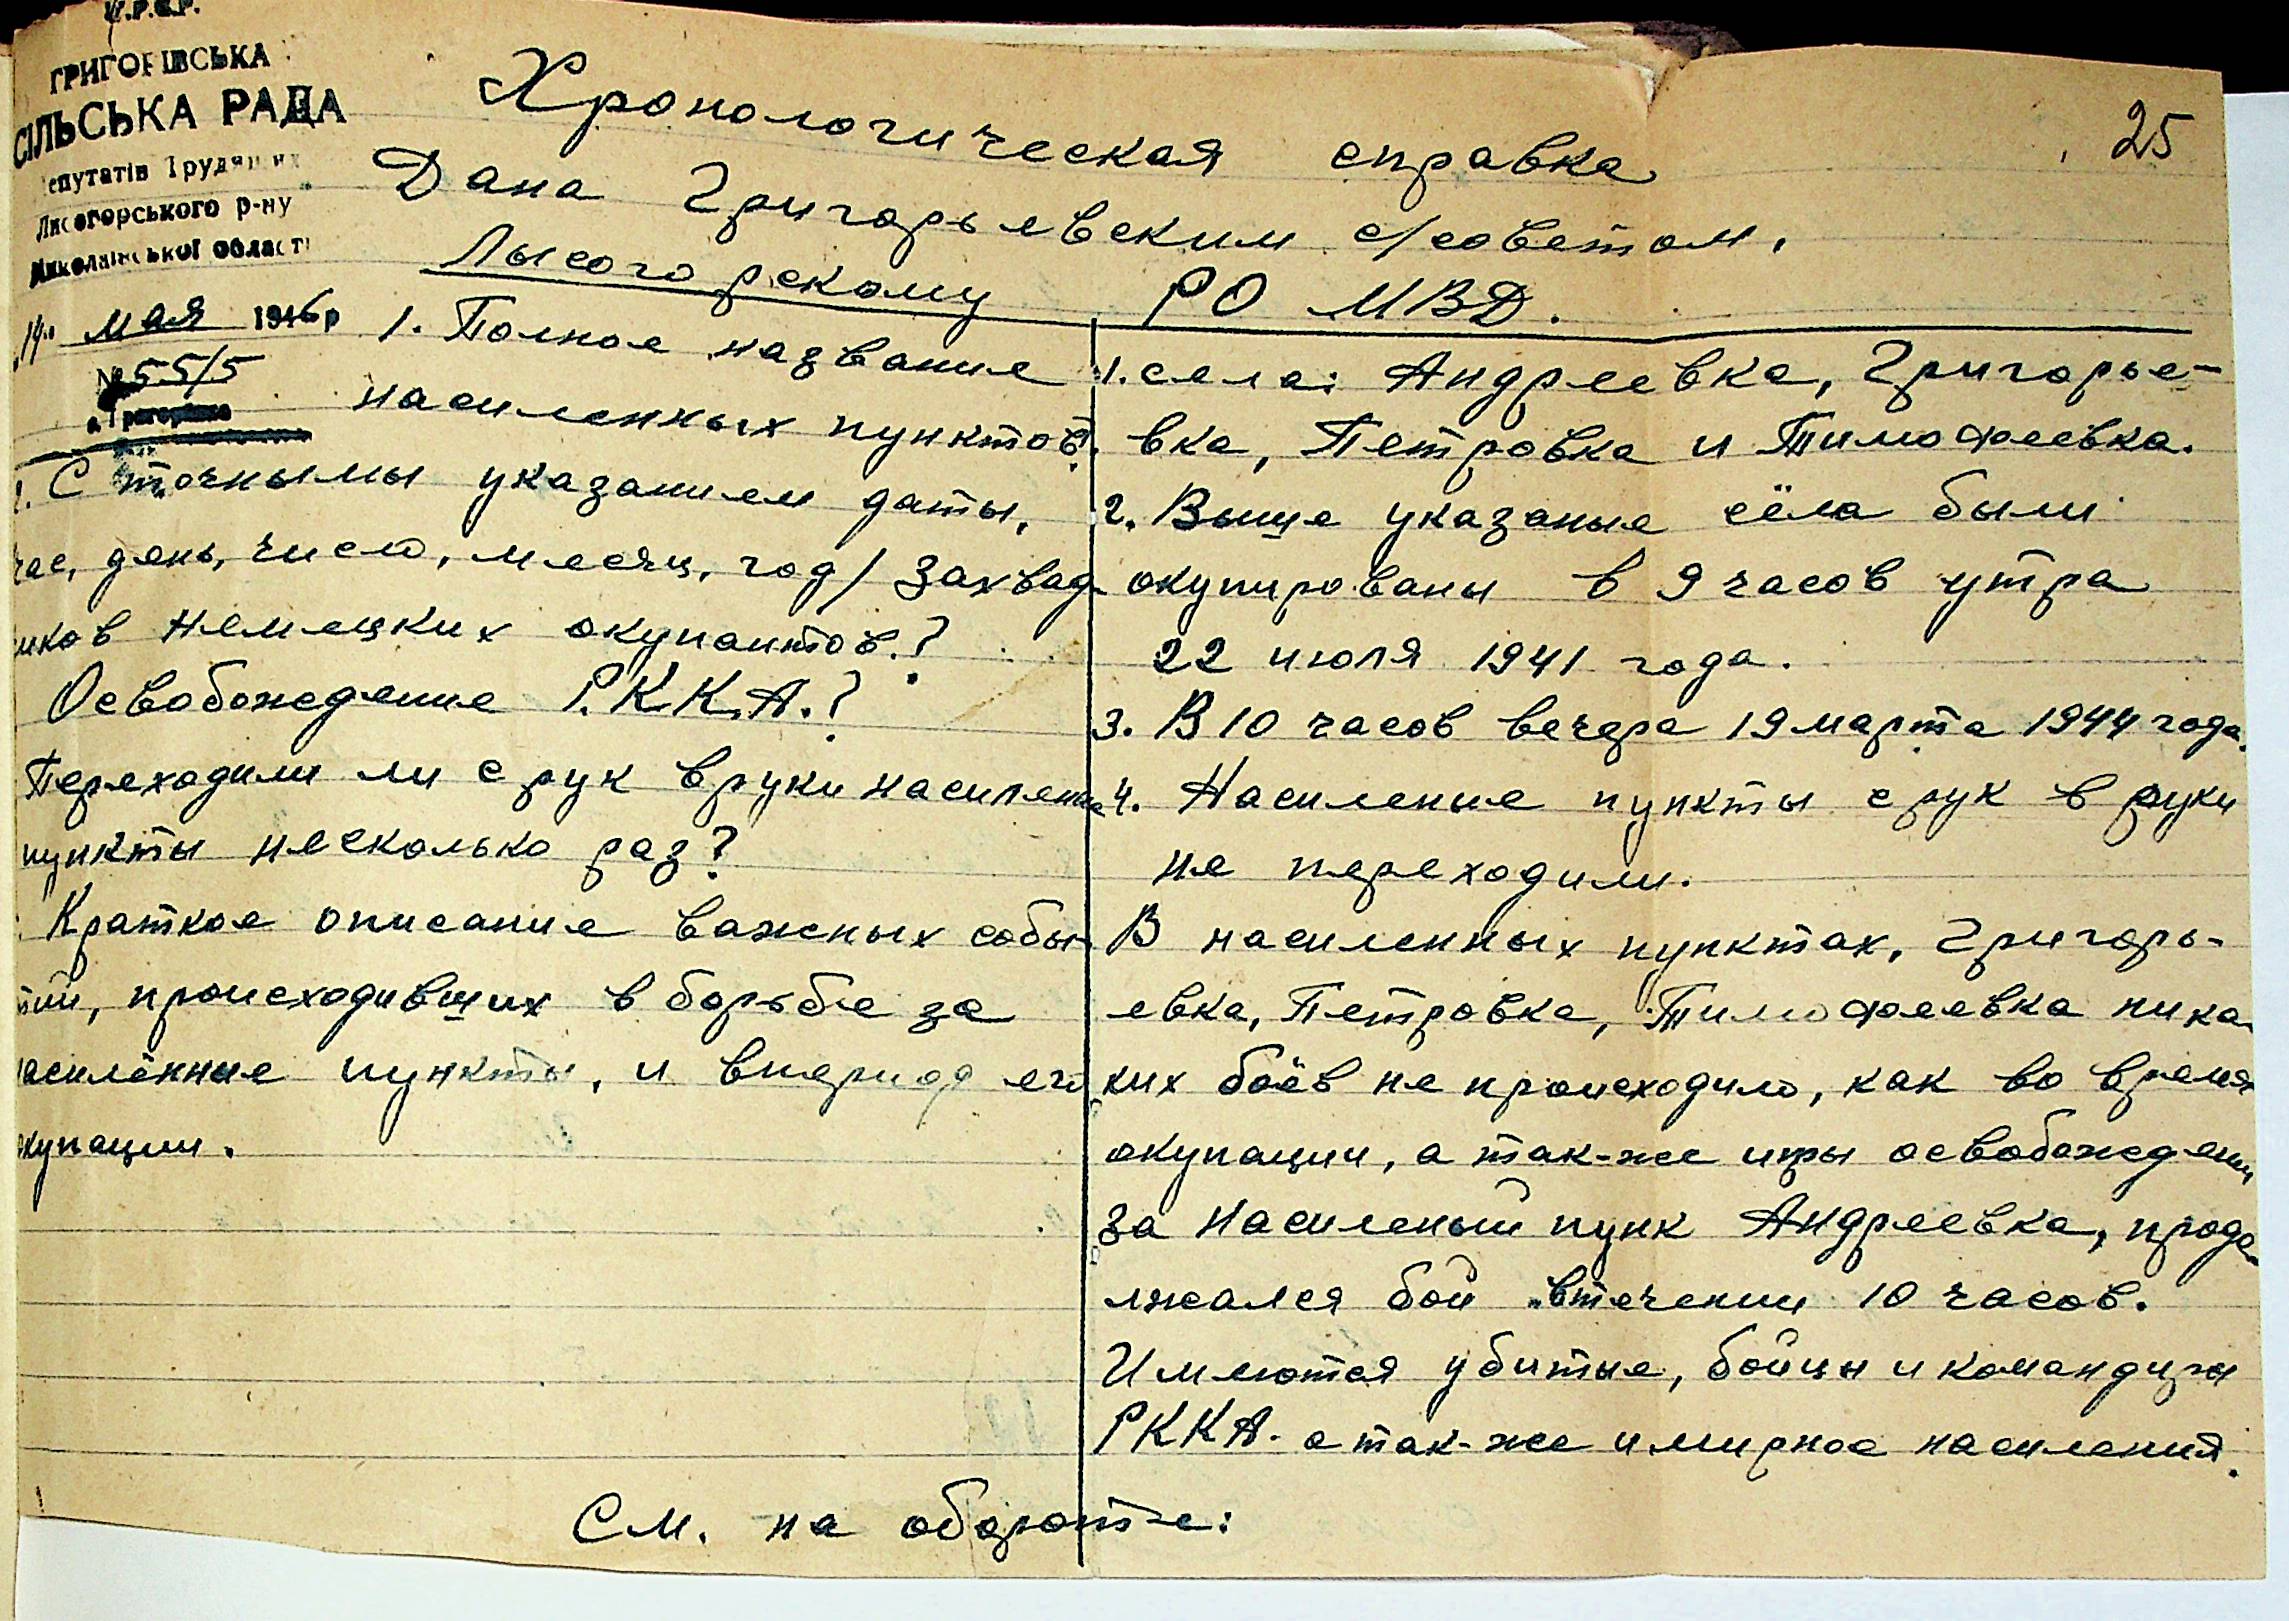 У.Р.С.Р.
ГРИГОРІВСЬКА
СІЛЬСЬКА РАДА
депутатів Трудящих
Лисогорського р-ну
Миколаївської області
"14" мая 1946 р
№ 55/5
с. Григорівка
25
Хронологическая справка
Дана Григорьевским с/советом,
Лысогорскому РО МВД.
1. Полное название
населенных пунктов?
2. С точнымы указанием даты,
час, день, число, месяц, год/ Захвад-
чиков немецких окупантов.?
Освобождение Р.К.К.А.?
Переходили ли с рук в руки насиление
пункты несколько раз?
Краткое описание важных собы-
тий, происходивщих в борьбе за
насилённые пункты, и впериод его
окупации.
1. села: Андреевка, Григорье-
вка, Петровка и Тимофеевка.
2. Выще указаные сёла были
окупированы в 9 часов утра
22 июля 1941 года.
3. В 10 часов вечера 19 марта 1944 года.
4. Насиление пункты с рук в руки
не переходили.
В насиленных пунктах, Григорь-
евка, Петровка, Тимофеевка ника-
ких боёв не происходило, как во время
окупации, а так-же игры освобождении
за насиленый пунк Андреевка, продо-
лжался бой втечении 10 часов.
Имеются убитые, бойцы и командиры
РККА. а так-же и мирное насиления.
См. на обороте: